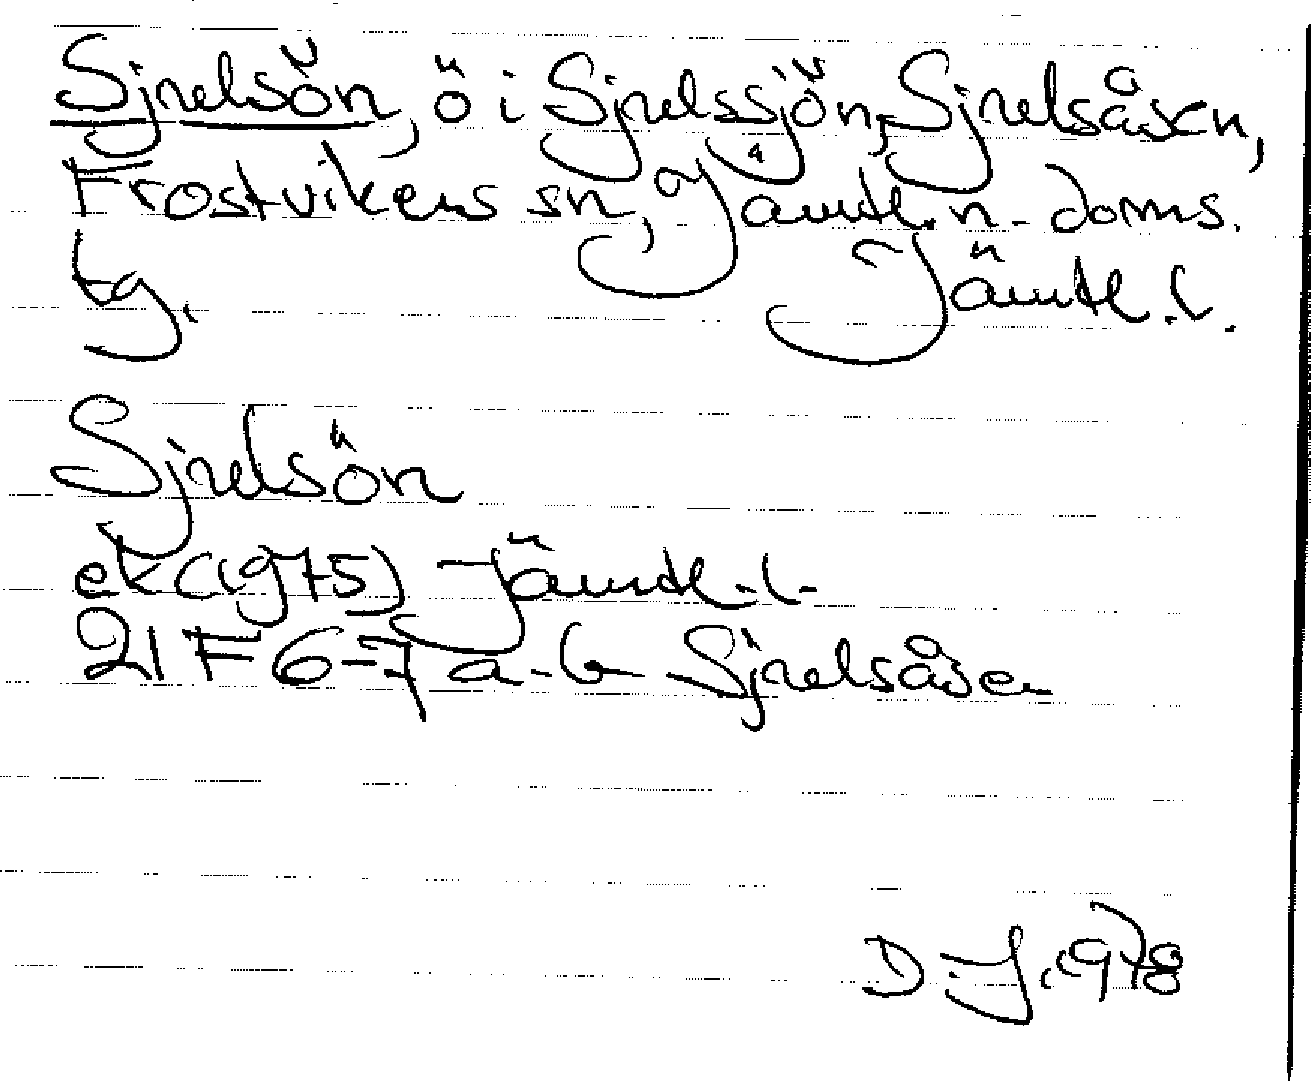 Sjnelsön, ö i Sjnelssjön, Sjnelsåsen,
Frostvikens sn, Jämtl. n. doms.
tg. Jämtl. l.
Sjnelsön
ek (1975) Jämtl. l.
21 F 6-7 a-b Sjnelsåsen
D-J. 1978